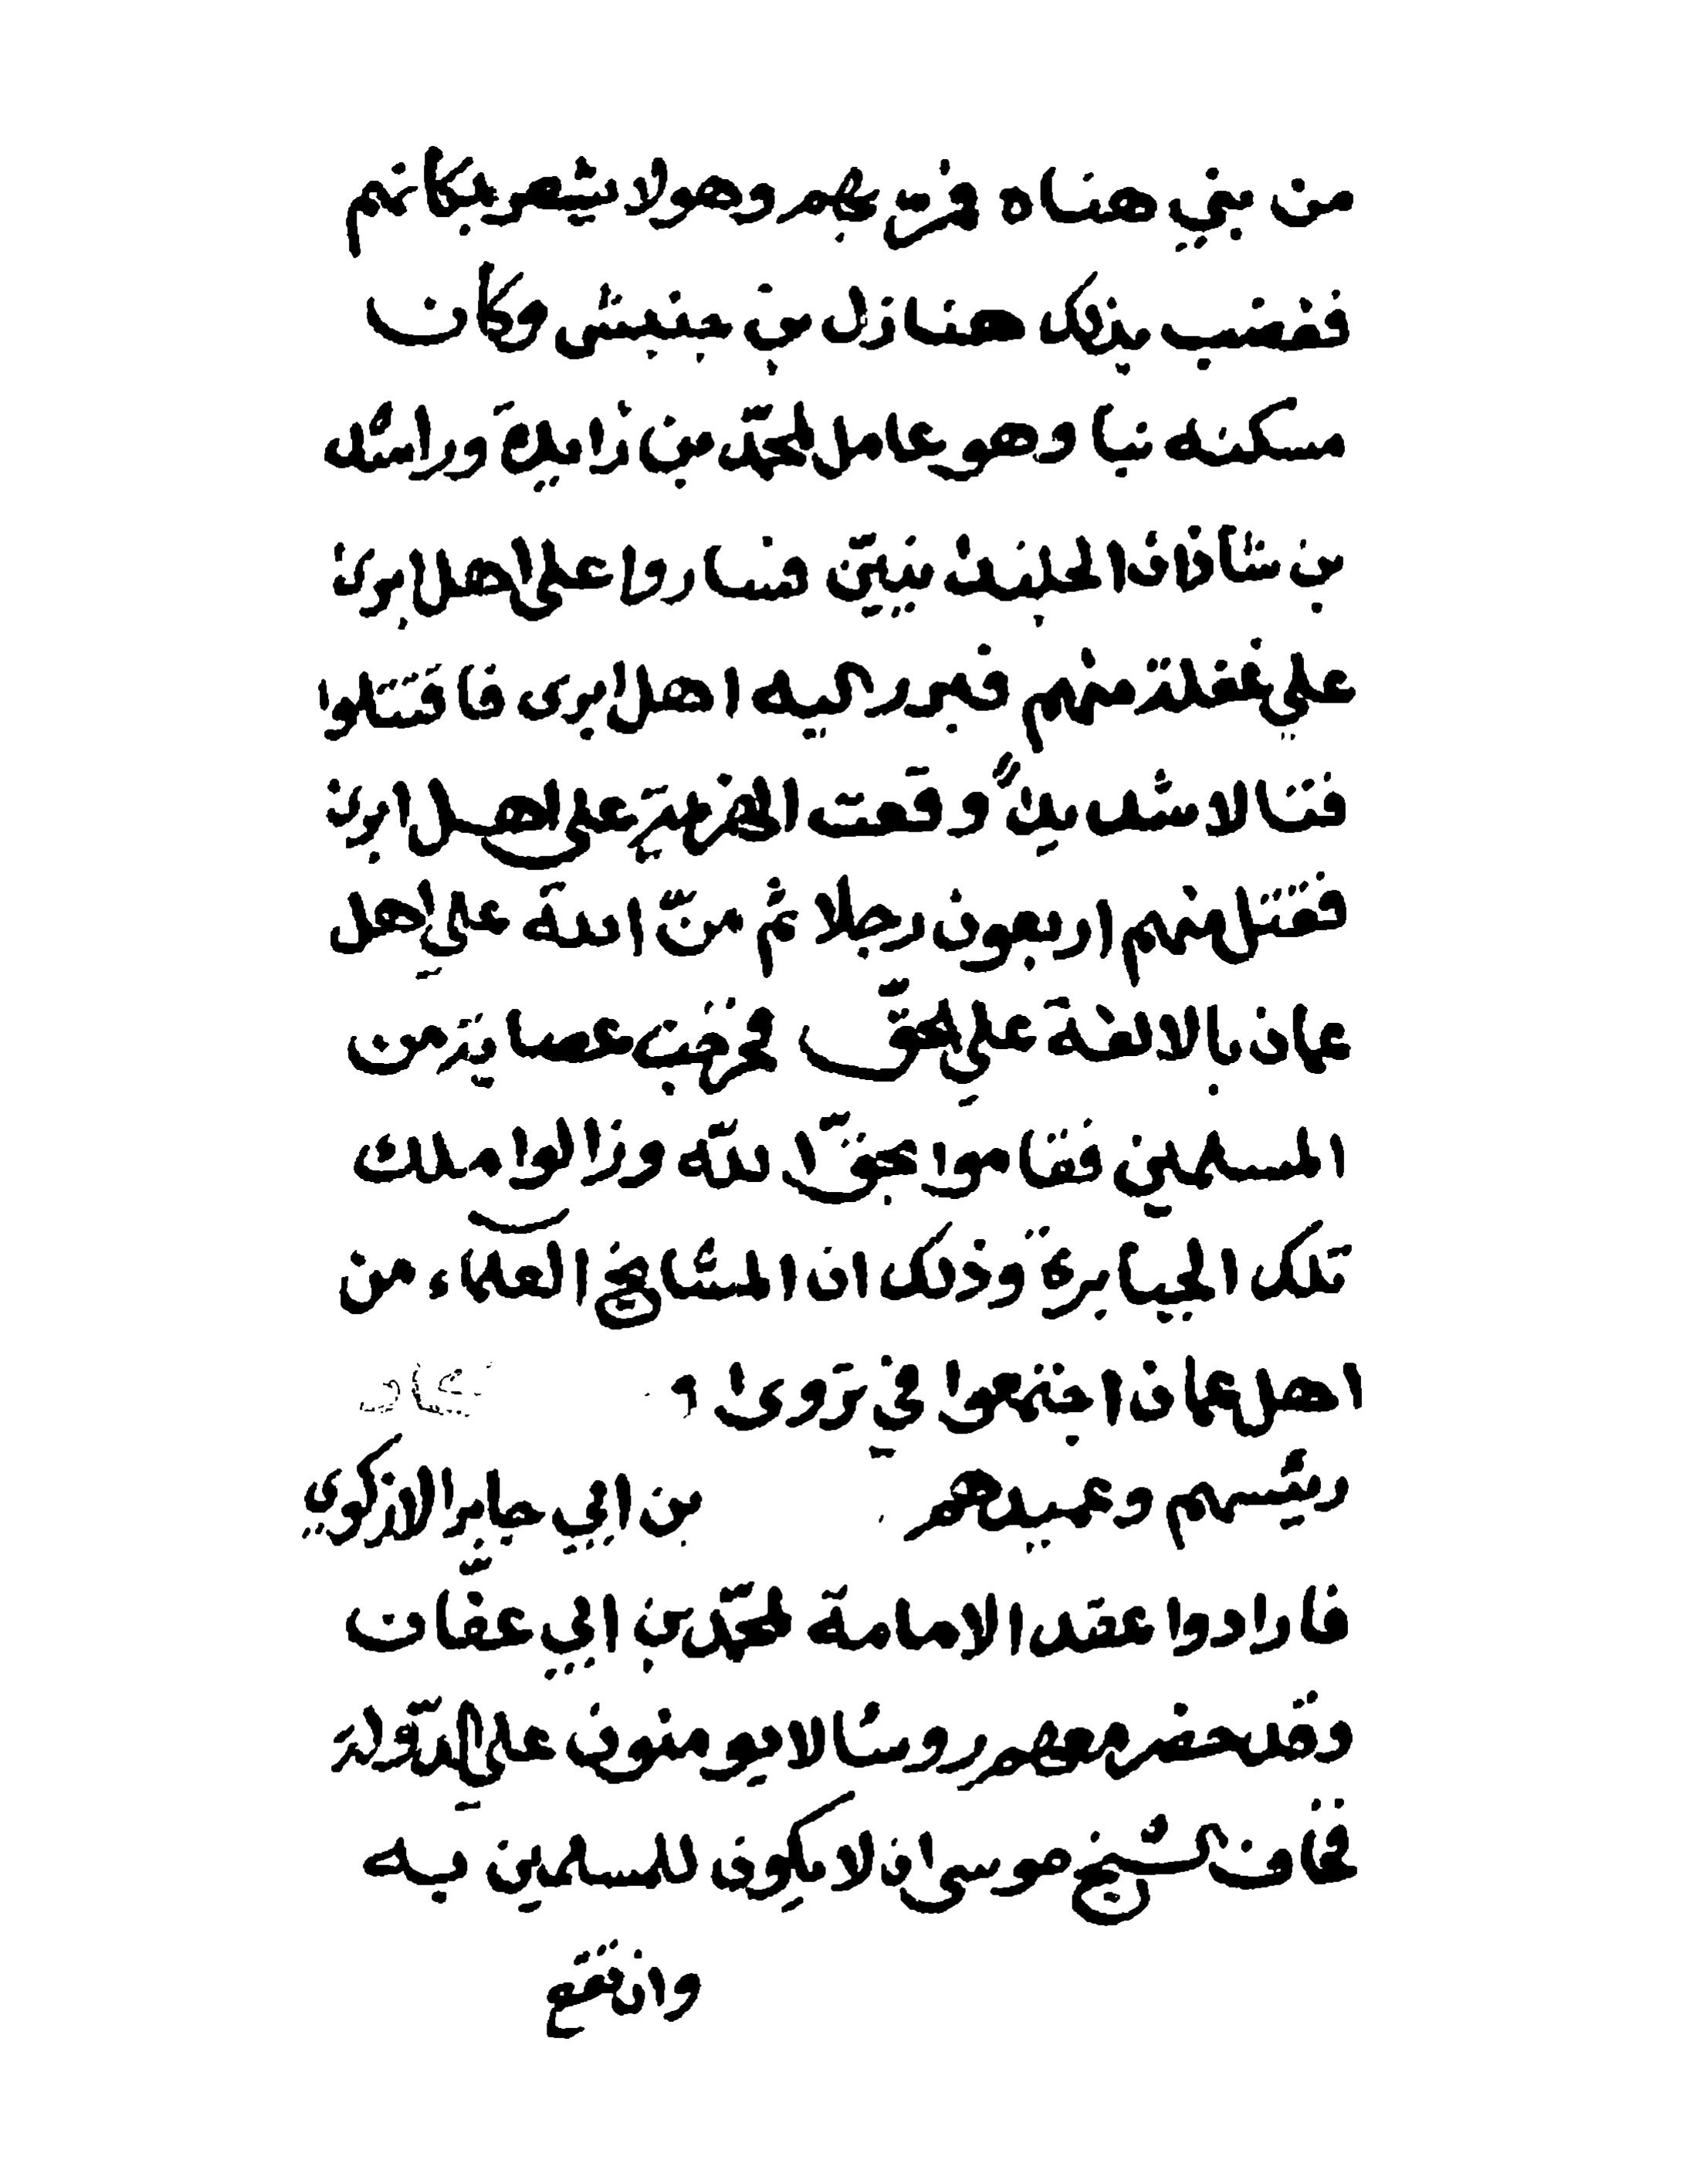 من بني هناه فمرت بهم وهو لا يشعر بمكانهم
فغضب بذلك هنازل بن خنبش وكان
مسكنه نبا وهو عامل لمحمّد بن زايدة وراشد
بن شاذان الجلندانيين فساروا على اهل ابرى
علي غفلة منهم فبرز اليه اهل ابرى فاقتتلوا
قتالا شديداً وقعت الهزيمة على اهل ابرى
فقتل منهم اربعون رجلا ثم منّ الله علي اهل
عمان بالالفة علي الحقّ فخرجت عصابة من
المسلمين فقاموا بحقّ الله وزالوا ملك
تلك الجبابرة وذلك ان المشايخ العلماء من
اهل عمان اجتمعوا في نزوى و كان
رئيسهم وعميدهم بن ابي جابر الازكوي
فارادوا عقد الامامة لمحمّد بن ابي عفّان
وقد حضر معهم روسا لا يومنون علي الدّولة
فخاف الشيخ موسى ان لا يكون للمسلمين يد
وان تقع